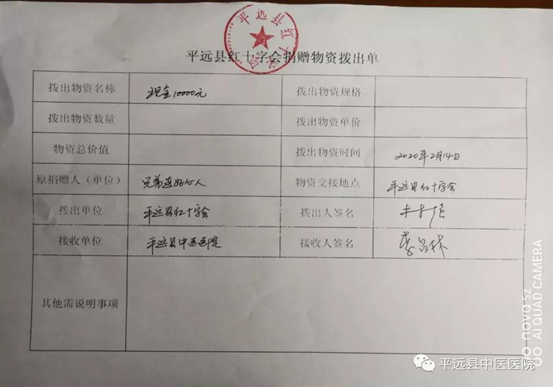 平远县红十字会
平远县红十字会捐赠物资拨出单
拨出物资名称 现金10000元 拨出物资规格
拨出物资数量 拨出物资单价
物资总价值 拨出物资时间 2020年2月14日
原捐赠人（单位） 兄弟连好心人 物资交接地点 平远县红十字会
拨出单位 平远县红十字会 拨出人签名
接收单位 平远县中医医院 接收人签名
其他需说明事项
nova 5z
AI QUAD CAMERA
平远县中医医院